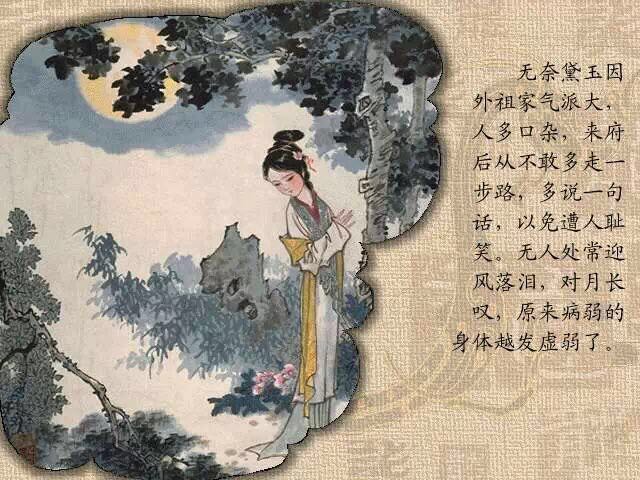 无奈黛玉因
外祖家气派大，
人多口杂，来府
后从不敢多走一
步路，多说一句
话，以免遭人耻
笑。无人处常迎
风落泪，对月长
叹，原来病弱的
身体越发虚弱了。